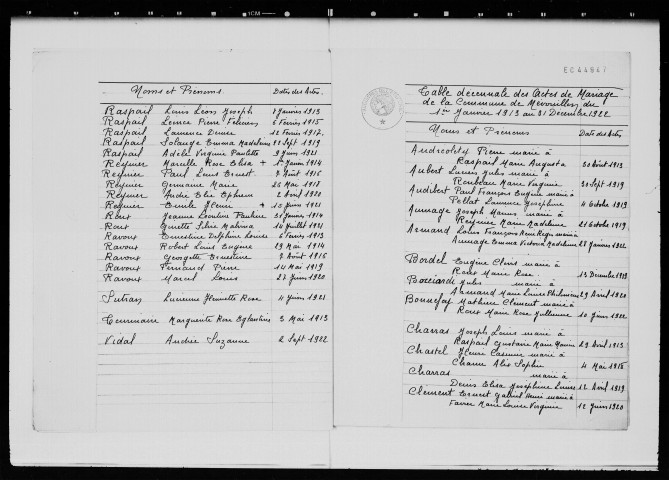 Noms et Prénoms Dates des Actes
Raspail Louis Léon Joseph 7 Janvier 1913
Raspail Léonce Pierre 6 Février 1915
Raspail Laurence Denise 12 Février 1917
Raspail Solange Emma Madeleine 21 Sept 1919
Raspail Adèle Virginie Paulette 9 Juin 1921
Reynier Marcelle Rose Elisa + 1er Janvier 1914
Reynier Paul Louis Ernest 7 Août 1916
Reynier Germaine Marie 26 Mai 1918
Reynier André Elie 2 Avril 1920
Reynier Emile Henri + 15 Juin 1921
Roux Jeanne Léontine Pauline 31 Janvier 1914
Roux Ginette Silvie 14 Juillet 1921
Ravoux Ernestine Delphine Louise 6 Février 1913
Ravoux Robert Louis Eugène 29 Mai 1914
Ravoux Georgette Ernestine 7 Août 1916
Ravoux Fernand Pierre 14 Mai 1919
Ravoux Marcel Louis 27 Juin 1920
Lucienne Henriette Rose 4 Juin 1921
Marguerite Rose Eglantine 3 Mai 1913
Vidal Andrée Suzanne 2 Sept 1922
EC44847
Table décennale des Actes de Mariage
de la Commune de du
1er Janvier 1913 au 31 Décembre 1922
Noms et Prénoms Dates des Actes
Pierre marié à
Raspail Marie Augusta 30 Août 1913
Aubert Lucien Jules marié à
Marie Virginie 30 Sept 1919
Audibert Paul François Eugène marié à
Pellat Laurence Joséphine 4 Octobre 1919
Aumage Joseph Marius marié à
Reynier Marie Madeleine 21 Octobre 1919
Armand Louis François René Régis marié à
Aumage Emma Victoria Madeleine 28 Janvier 1922
Bordel Eugène Clovis marié à
Roux Marie Rose 13 Décembre 1913
Jules marié à
Armand Marie Louise Philomène 29 Avril 1920
Bonnefoy Mathieu Clément marié à
Roux Marie Rose 10 Juin 1922
Charras Joseph Louis marié à
Raspail Marie 29 Avril 1913
Chastel Henri Casimir marié à
Chauvu Alix Sophie 4 Mai 1918
Charras marié à
Denis Elisa Joséphine Louise 12 Avril 1919
Clément Ernest Gabriel Henri marié à
Favier Marie Louise Virginie 12 Juin 1920